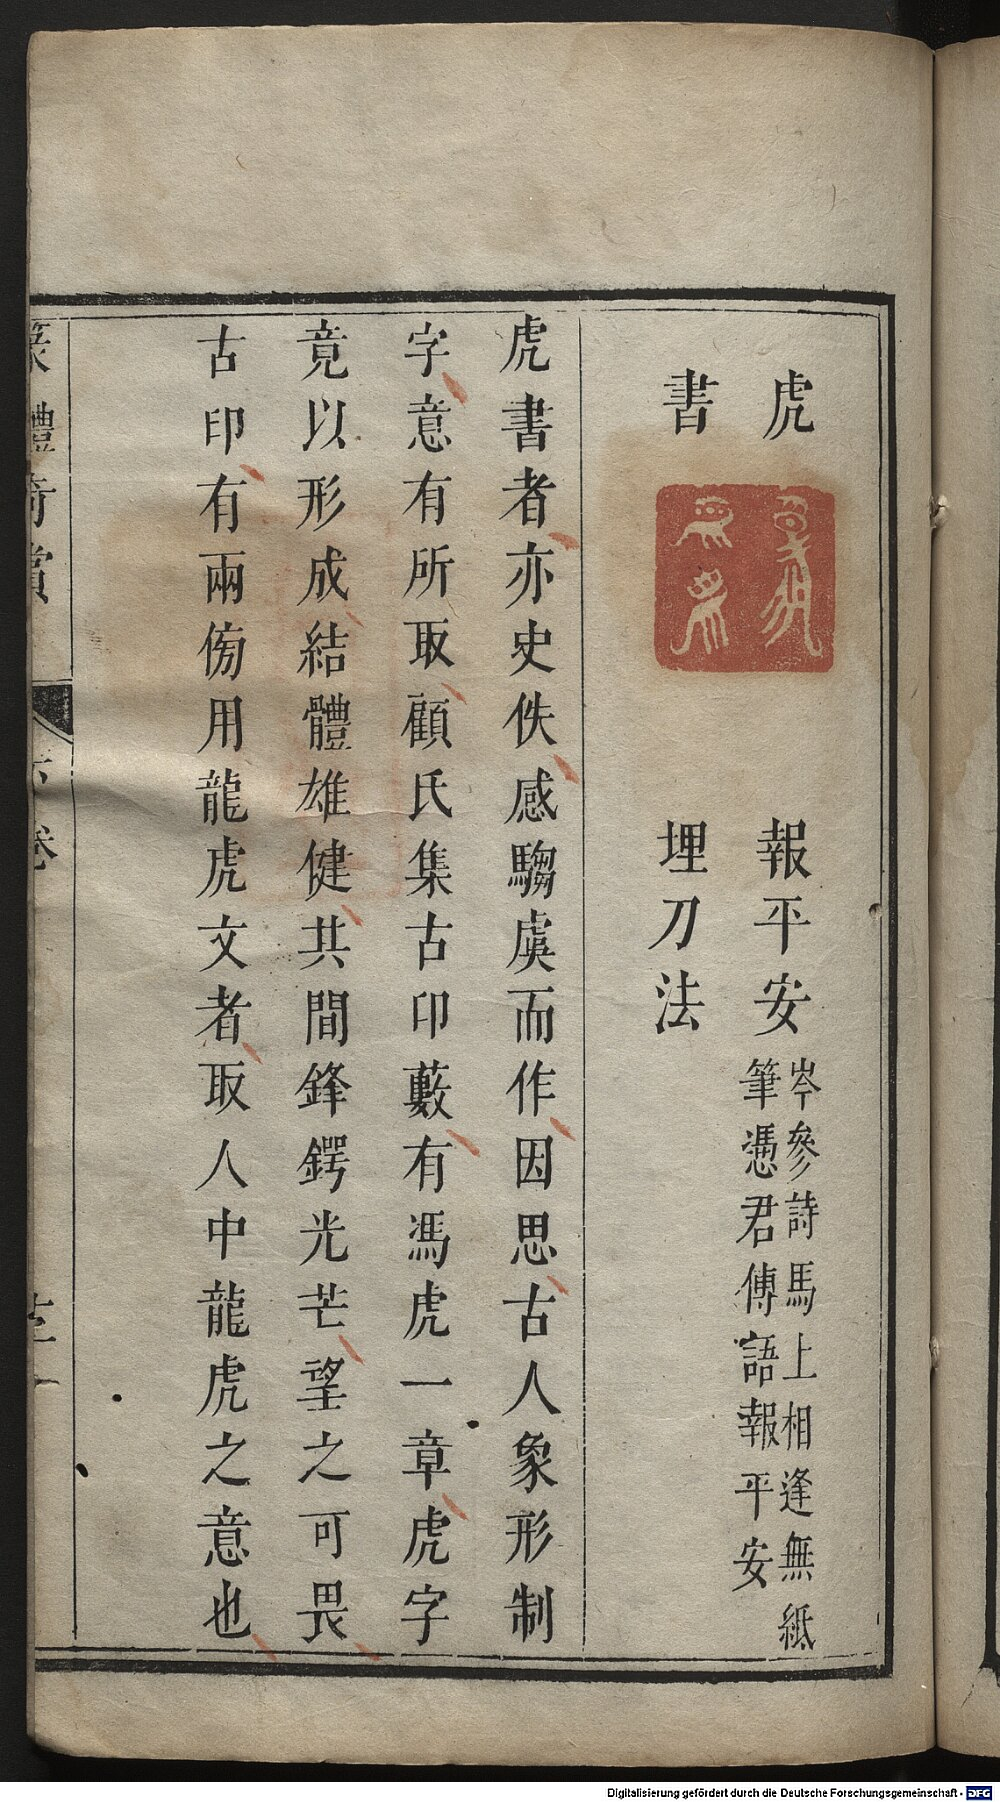 虎書
報平安 岑參詩馬上相逢無紙
筆憑君傳語報平安
埋刀法
虎書者亦史佚感騶虞而作因思古人象形制
字意有所取顧氏集古印藪有馮虎一章虎字
竟以形成結體雄健共間鋒鍔光芒望之可畏
古印有兩傍用龍虎文者取人中龍虎之意也
篆體奇賞
六卷
Digitalisierung gefördert durch die Deutsche Forschungsgemeinschaft - DFG